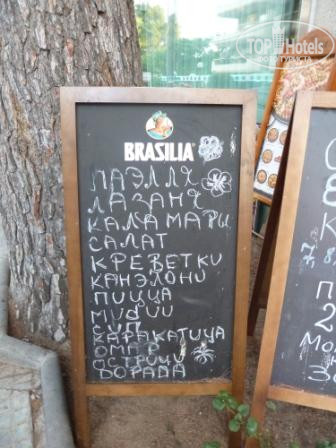 TOPHotels
BRASILIA
ПАЭЛЛЯ
ЛАЗАНЯ
КАЛАМАРЫ
САЛАТ
КРЕВЕТКИ
КАНЭЛОНИ
ПИЦЦА
МИДИИ
СУП
КАРАКАТИЦА
ОМАР
УСТРИЦИ
ДОРАДА